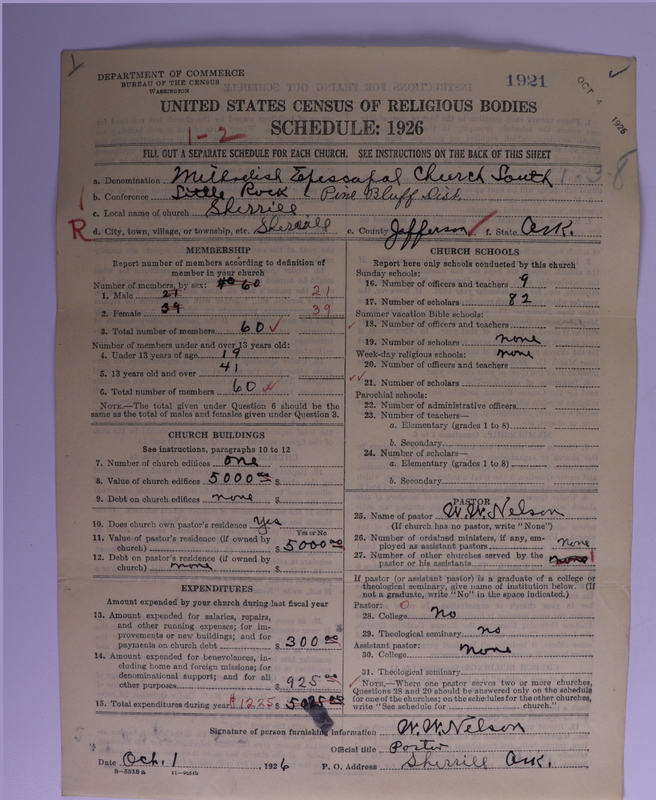 DEPARTMENT OF COMMERCE
BUREAU OF THE CENSUS
WASHINGTON
1921
OCT 4 1926
UNITED STATES CENSUS OF RELIGIOUS BODIES
SCHEDULE: 1926
1-2
FILL OUT A SEPARATE SCHEDULE FOR EACH CHURCH. SEE INSTRUCTIONS ON THE BACK OF THIS SHEET
a. Denomination Methodist Episcopal Church South 1-3-8
b. Conference Little Rock / Pine Bluff Dist.
c. Local name of church Sherrill
R d. City, town, village, or township, etc. Sherrill e. County Jefferson f. State Ark.
MEMBERSHIP
Report number of members according to definition of member in your church
Number of members, by sex: 60
1. Male 21 21
2. Female 39 39
3. Total number of members 60
Number of members under and over 13 years old:
4. Under 13 years of age 19
5. 13 years old and over 41
6. Total number of members 60
NOTE.—The total given under Question 6 should be the same as the total of males and females given under Question 3.
CHURCH BUILDINGS
See instructions, paragraphs 10 to 12
7. Number of church edifices one
8. Value of church edifices 5000.00 $
9. Debt on church edifices none $
10. Does church own pastor's residence yes
Yes or No
11. Value of pastor's residence (if owned by church) $ 5000.00
12. Debt on pastor's residence (if owned by church) none $
EXPENDITURES
Amount expended by your church during last fiscal year
13. Amount expended for salaries, repairs, and other running expenses; for improvements or new buildings; and for payments on church debt $ 300.00
14. Amount expended for benevolences, including home and foreign missions; for denominational support; and for all other purposes $ 925.00
15. Total expenditures during year $1225 $ 5025.00
CHURCH SCHOOLS
Report here only schools conducted by this church
Sunday schools:
16. Number of officers and teachers 9
17. Number of scholars 82
Summer vacation Bible schools:
18. Number of officers and teachers
19. Number of scholars none
Week-day religious schools: none
20. Number of officers and teachers
21. Number of scholars
Parochial schools:
22. Number of administrative officers
23. Number of teachers—
a. Elementary (grades 1 to 8)
b. Secondary
24. Number of scholars—
a. Elementary (grades 1 to 8)
b. Secondary
PASTOR
25. Name of pastor W. W. Nelson
(If church has no pastor, write "None")
26. Number of ordained ministers, if any, employed as assistant pastors none
27. Number of other churches served by the pastor or his assistants none 1
If pastor (or assistant pastor) is a graduate of a college or theological seminary, give name of institution below. (If not a graduate, write "No" in the space indicated.)
Pastor: O
28. College no
29. Theological seminary no
Assistant pastor: none
30. College
31. Theological seminary
NOTE.—Where one pastor serves two or more churches, Questions 28 and 29 should be answered only on the schedule for one of the churches; on the schedules for the other churches, write "See schedule for church."
Signature of person furnishing information W. W. Nelson
Official title Pastor
Date Oct. 1, 1926 P. O. Address Sherrill Ark.